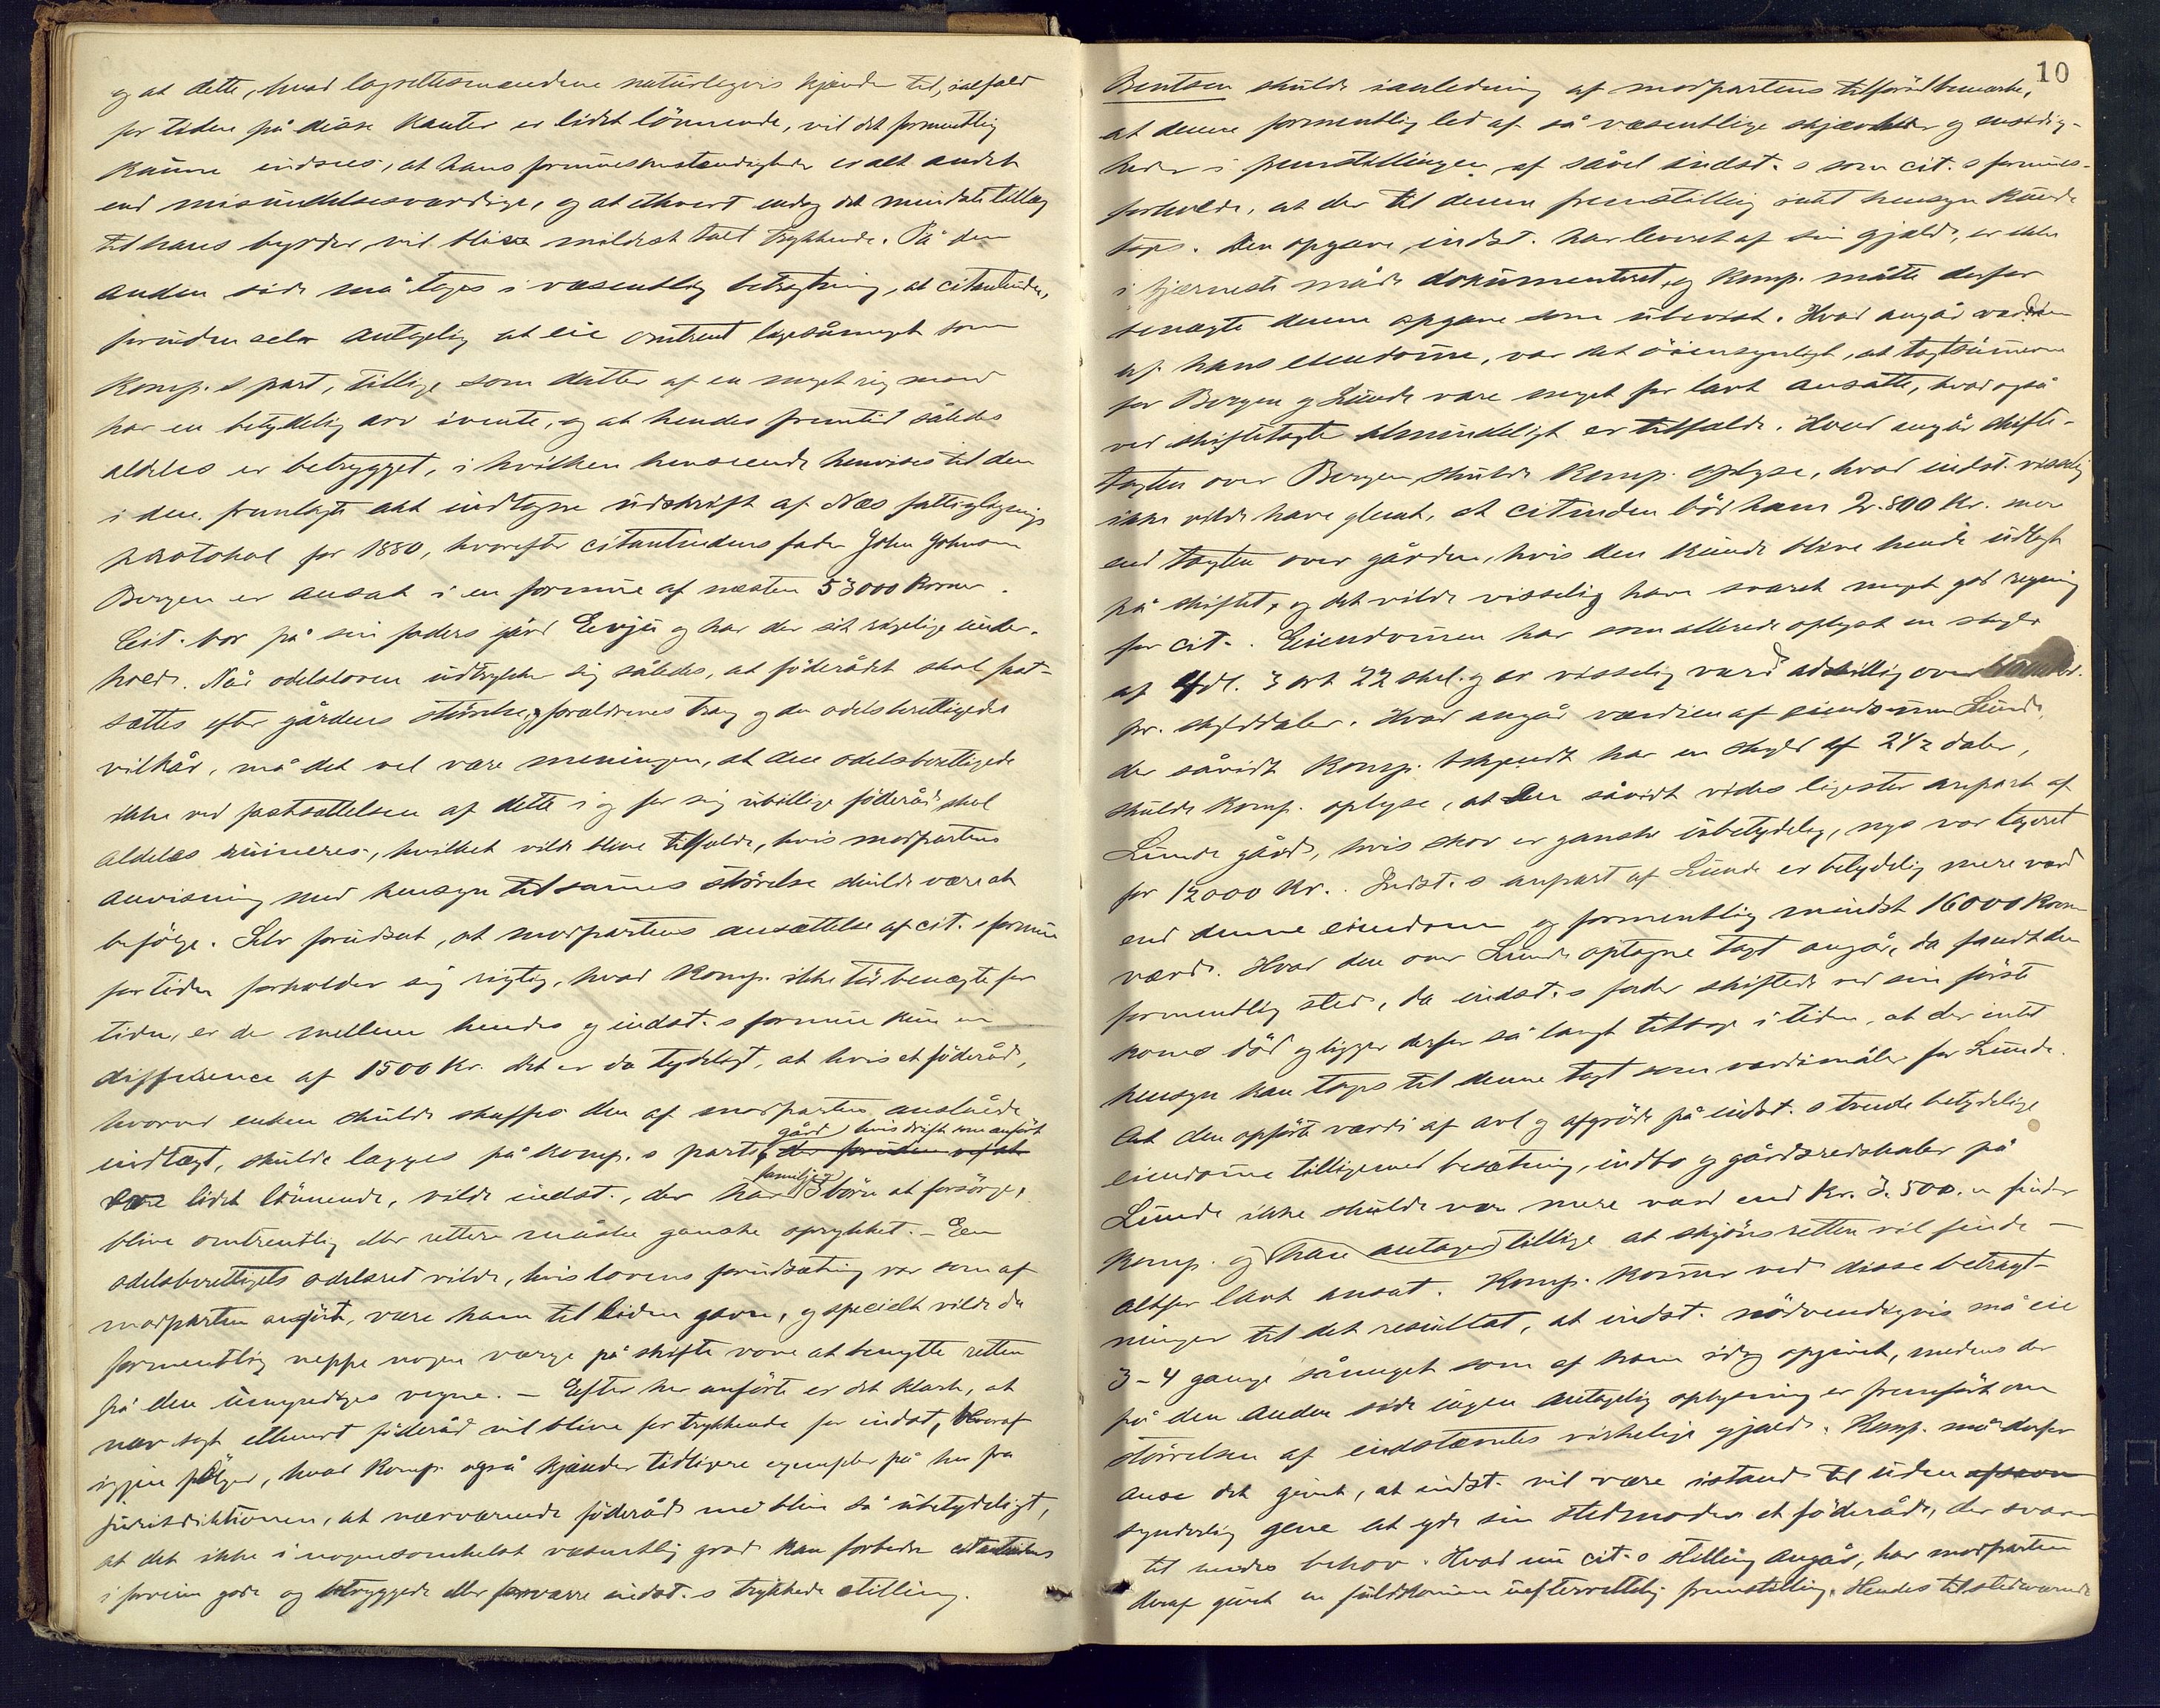 og at dette, hvad lagrettesmændene naturligvis kjender til, ialfald
for tiden på disse kanter er lidet lönnende, vil det formentlig
kunne indsees, at hans formuesomstændigheder er alt andet
end misundelsesværdige, og at ethvert endog det mindste tillæg
til hans byrder vil blive mildest talt trykkende. På den
anden side må tages i væsentlig betragtning, at citantinden,
foruden selv antagelig at eie omtrent ligesåmeget som
komp.s part, tillige som datter af en meget rig mand
har en betydelig arv ivente, og at hendes fremtid således
aldeles er betrygget, i hvilken henseende henvises til den
i den fremlagte akt indtagne udskrift af Næs fattiglignings
protokol for 1880, hvorefter citantindens fader John Johnsen
Bergen er ansat i en formue af næsten 53000 Kroner.
Cit. bor på sin faders gård Evju og har der sit rigelige under-
hold. Når odelsloven udtrykker sig således, at föderådet skal fast-
sættes efter gårdens störrelse, og forældrenes trang og den odelsberettigedes
vilkår, må det vel være meningen, at den odelsberettigede
ikke ved fastsættelsen af dette i og for sig ubillige föderåd skal
aldeles ruineres, hvilket vilde blive tilfælde, hvis modpartens
anvisning med hensyn til sammes störrelse skulde være at
befölge. Selv forudsat, at modpartens ansættelse af cit.s formue
for tiden forholder sig rigtig, hvad komp. ikke tör benægte for
tiden, er der mellem hendes og indst.s formue kun en
difference af 1500 Kr. det er da tydeligt, at hvis et föderåd,
hvorved enken skulde skaffes den af modparten anslåede
indtægt, skulde lægges på komp.s parts gård, hvis drift som anfört
er lidet lönnende, vilde indst., der har familje 3 börn at forsörge,
blive omtrentlig eller rettere måske ganske oprykket. – En
odelsberettigets odelsret vilde, hvis lovens forudsætning var som af
modparten anfört, være ham til liden gavn, og specielt vilde da
formentlig neppe nogen værge på skifte vove at benytte retten
på den umyndiges vegne. – Efter her anförte er det klart, at
nær sagt ethvert föderåd vil blive for trykkende for indst, hvoraf
igjen fölger, hvad komp. også kjender tidligere exempler på her fra
jurisdiktionen, at nærværende föderåd må blive så ubetydeligt,
at det ikke i nogensomhelst væsentlig grad kan forbedre citantindens
i forveien gode og betryggede eller forværre indst.s trykkede stilling.
10
Bentsen skulde ianledning af modpartens tilförsel bemærke,
at denne formentlig led af så væsentlige skjævheder og ensidig-
heder i fremstillingen af såvel indst.s som cit.s formues-
forholde, at der til denne fremstilling intet hensyn kunde
tages. Den opgave indst. har leveret af sin gjæld, er ikke
i fjerneste måde dokumenteret, og komp. måtte derfor
benægte denne opgave som ubevist. Hvad angår værdien
af hans eiendomme, var det öiensynligt, at taxtsummerne
for Bergen og Lunde vare meget for lavt ansatte, hvad også
ved skiftetaxter almindeligt er tilfælde. Hvad angår skifte-
taxten over Bergen, skulde komp. oplyse, hvad indst. visselig
ikke vilde have glemt, at citinden böd ham 2.800 Kr. mer
end taxten over gården, hvis den kunde blive hende udlagt
på skiftet, og det vilde visselig have svaret meget god regning
for cit. Eiendommen har som allerede oplyst en skyld
af 4 dl. 3 ort 22 skil. og er visselig værd adskillig over
pr. skylddaler. Hvad angår værdien af eiendommen Lunde,
der såvidt komp. bekjendt har en skyld af 2 1/2 daler,
skulde komp. oplyse, at den såvidt vides ligestore anpart af
Lunde gård, hvis skov er ganske ubetydelig, nys var taxeret
for 12000 Kr. Indst.s anpart af Lunde er betydelig mere værd
end denne eiendom og formentlig mindst 16000 Kroner
værd. Hvad den over Lunde optagne taxt angår, da fandt den
formentlig sted, da indst.s fader skiftede ved sin förste
kones död og ligger derfor så langt tilbage i tiden, at der intet
hensyn kan tages til denne taxt som værdimåler for Lunde.
At den opförte værdi af avl og afgröde på indst.s tvende betydelige
eiendomme tilligemed besætning, indbo og gårdsredskaber på
Lunde ikke skulde være mere værd end Kr. 3.500. finder
komp. og han antager tillige at skjönsretten vil finde –
altfor lavt ansat. Komp. kommer ved disse betragt-
ninger til det resultat, at indst. nödvendigvis må eie
3-4 gange såmeget som af ham idag opgivet, medens der
på den anden side ingen antagelig oplysning er fremfört om
störrelsen af indstævntes virkelige gjæld. Komp. må derfor
anse det givet, at indst. vil være istand til uden afsavn
synderlig gene at yde sin stedmoder et föderåd, der svarer
til hendes behov. Hvad nu cit.s stilling angår, har modparten
deraf givet en fuldkommen uefterrettelig fremstilling. Hendes tilstedeværende